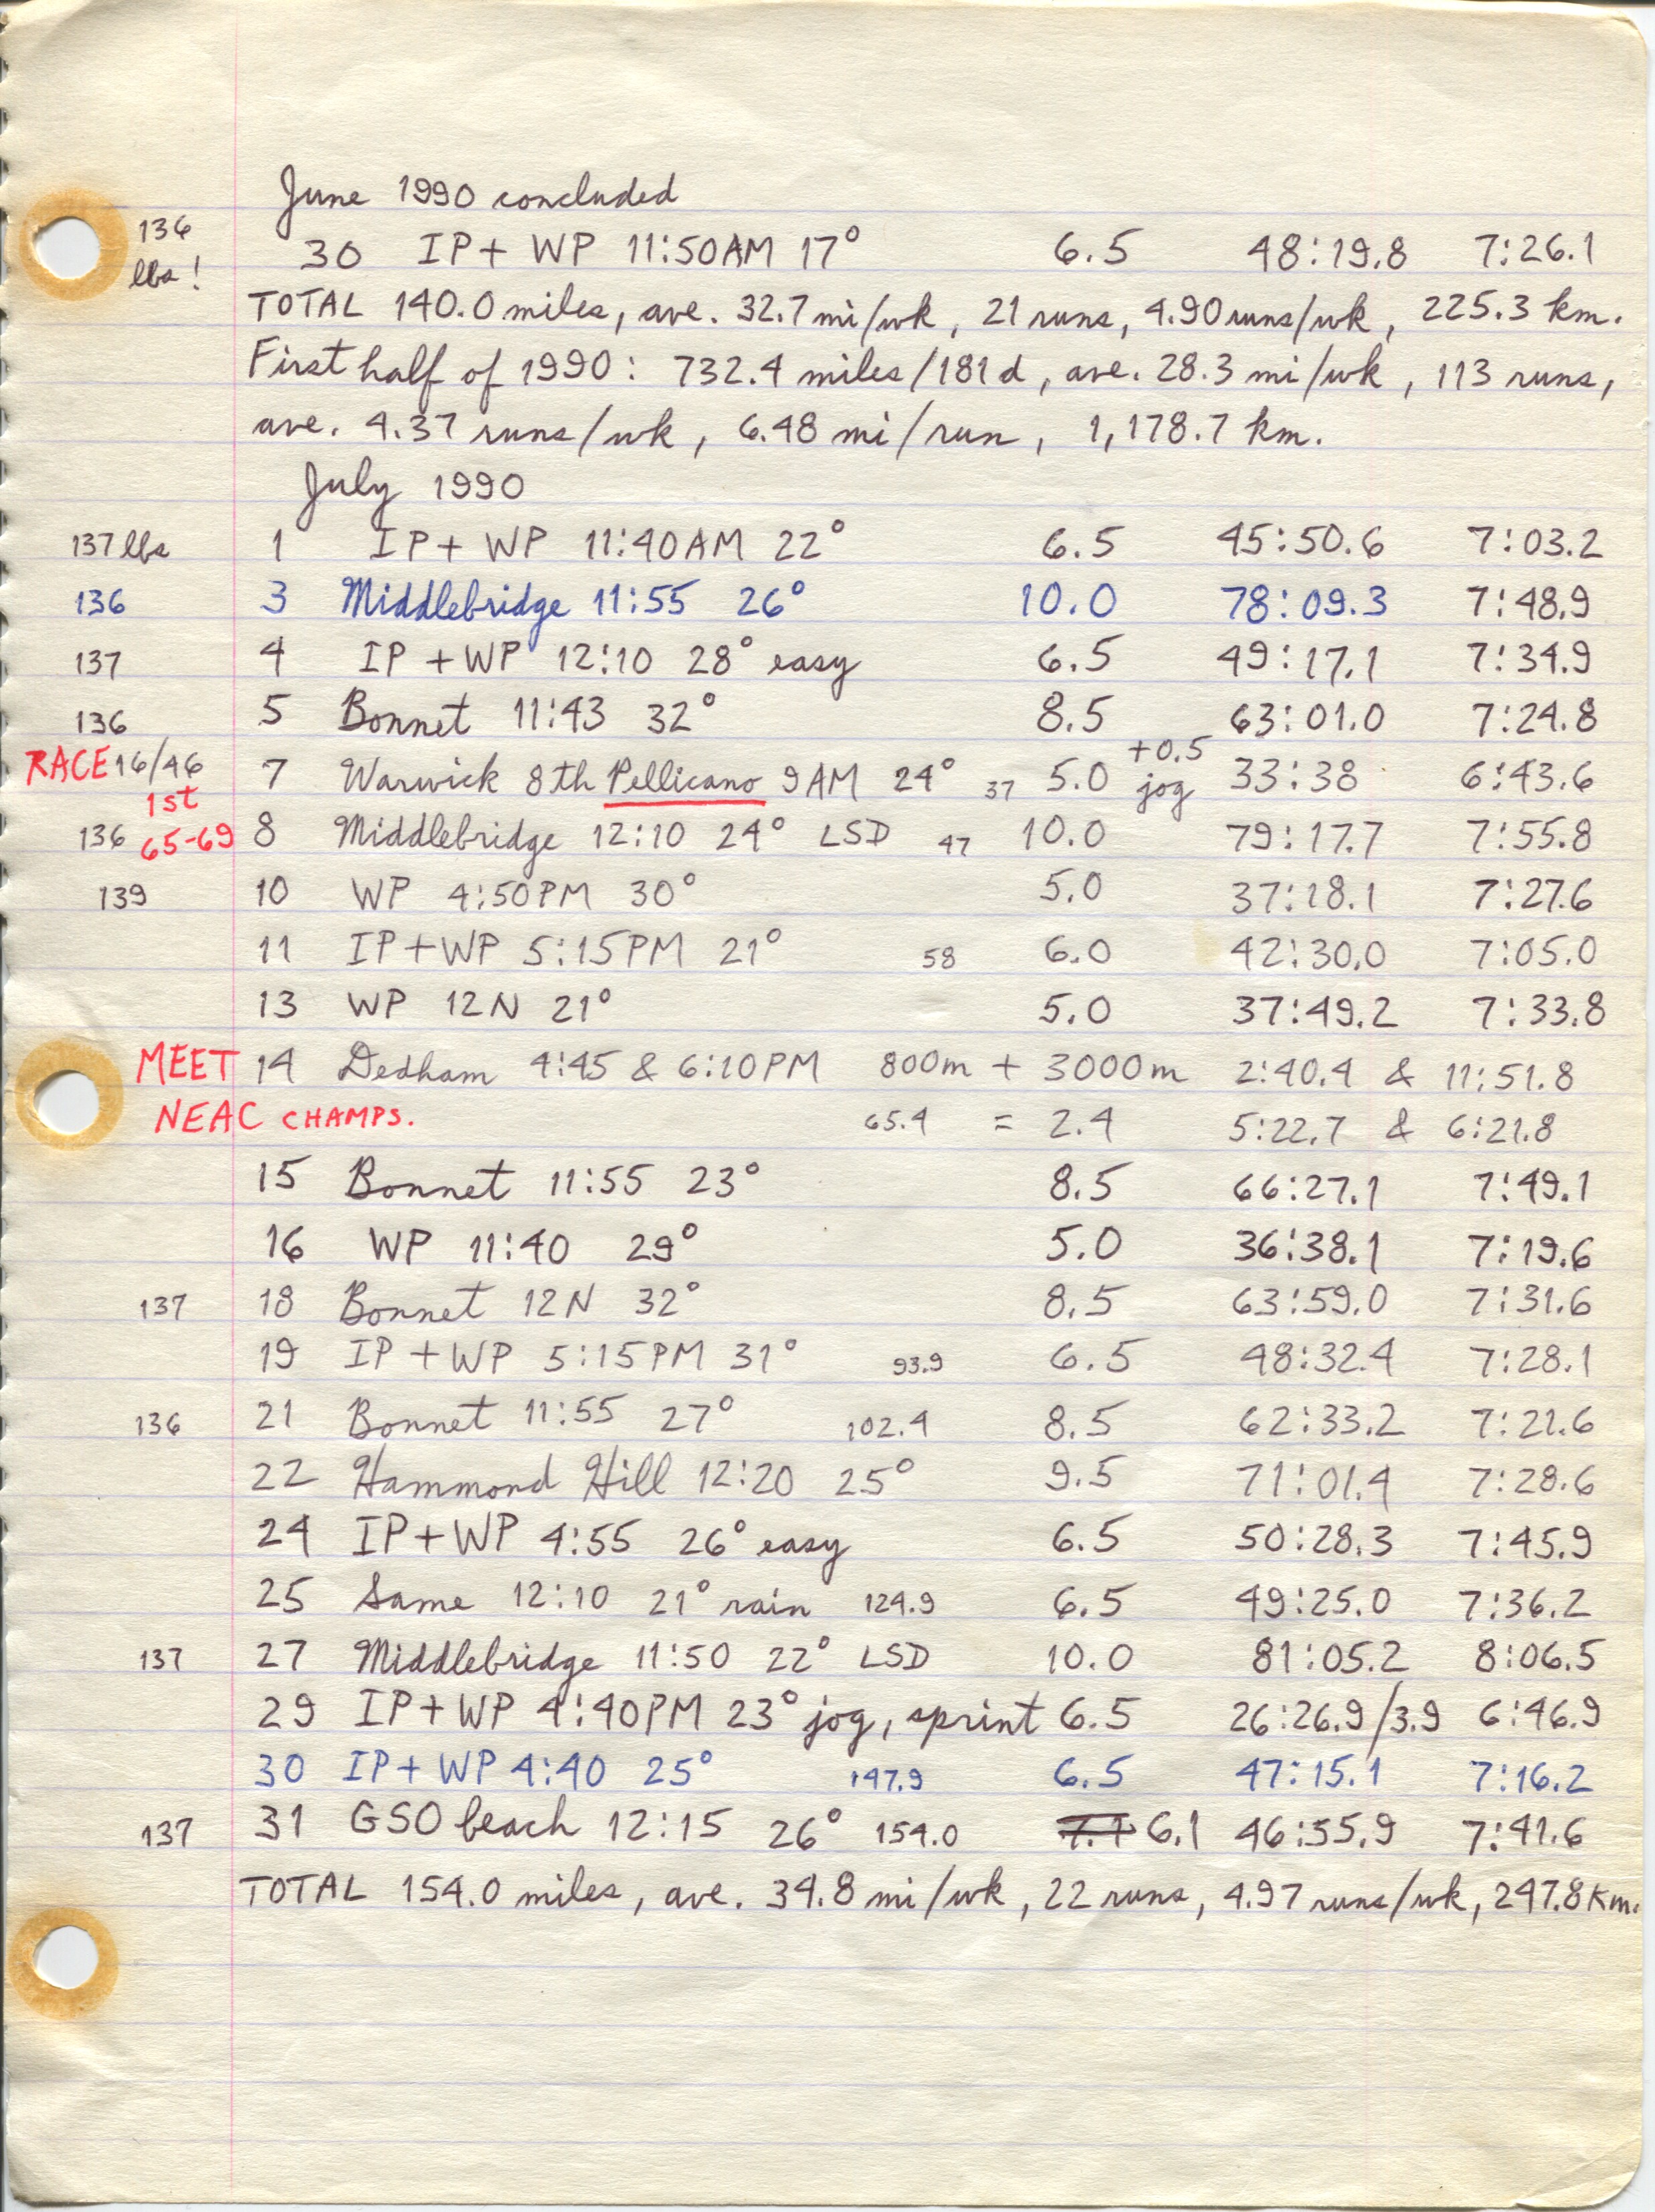 June 1990 concluded
136 lbs! 30 IP + WP 11:50AM 17° 6.5 48:19.8 7:26.1
TOTAL 140.0 miles, ave. 32.7 mi/wk, 21 runs, 4.90 runs/wk, 225.3 km.
First half of 1990: 732.4 miles/181d, ave. 28.3 mi/wk, 113 runs,
ave. 4.37 runs/wk, 6.48 mi/run, 1,178.7 km.
July 1990
137 lbs 1 IP + WP 11:40AM 22° 6.5 45:50.6 7:03.2
136 3 Middlebridge 11:55 26° 10.0 78:09.3 7:48.9
137 4 IP + WP 12:10 28° easy 6.5 49:17.1 7:34.9
136 5 Bonnet 11:43 32° 8.5 63:01.0 7:24.8
RACE 16/46 7 Warwick 8th Pellicano 9AM 24° 37 5.0 +0.5 jog 33:38 6:43.6
1st
136 65-69 8 Middlebridge 12:10 24° LSD 47 10.0 79:17.7 7:55.8
139 10 WP 4:50PM 30° 5.0 37:18.1 7:27.6
11 IP + WP 5:15PM 21° 58 6.0 42:30.0 7:05.0
13 WP 12N 21° 5.0 37:49.2 7:33.8
MEET 14 Dedham 4:45 & 6:10PM 800m + 3000m 2:40.4 & 11:51.8
NEAC CHAMPS. 65.4 = 2.4 5:22.7 & 6:21.8
15 Bonnet 11:55 23° 8.5 66:27.1 7:49.1
16 WP 11:40 29° 5.0 36:38.1 7:19.6
137 18 Bonnet 12N 32° 8.5 63:59.0 7:31.6
19 IP + WP 5:15PM 31° 93.9 6.5 48:32.4 7:28.1
136 21 Bonnet 11:55 27° 102.4 8.5 62:33.2 7:21.6
22 Hammond Hill 12:20 25° 9.5 71:01.4 7:28.6
24 IP + WP 4:55 26° easy 6.5 50:28.3 7:45.9
25 Same 12:10 21° rain 124.9 6.5 49:25.0 7:36.2
137 27 Middlebridge 11:50 22° LSD 10.0 81:05.2 8:06.5
29 IP + WP 4:40PM 23° jog, sprint 6.5 26:26.9/3.9 6:46.9
30 IP + WP 4:40 25° 147.9 6.5 47:15.1 7:16.2
137 31 GSO beach 12:15 26° 154.0 6.1 46:55.9 7:41.6
TOTAL 154.0 miles, ave. 34.8 mi/wk, 22 runs, 4.97 runs/wk, 247.8 Km.